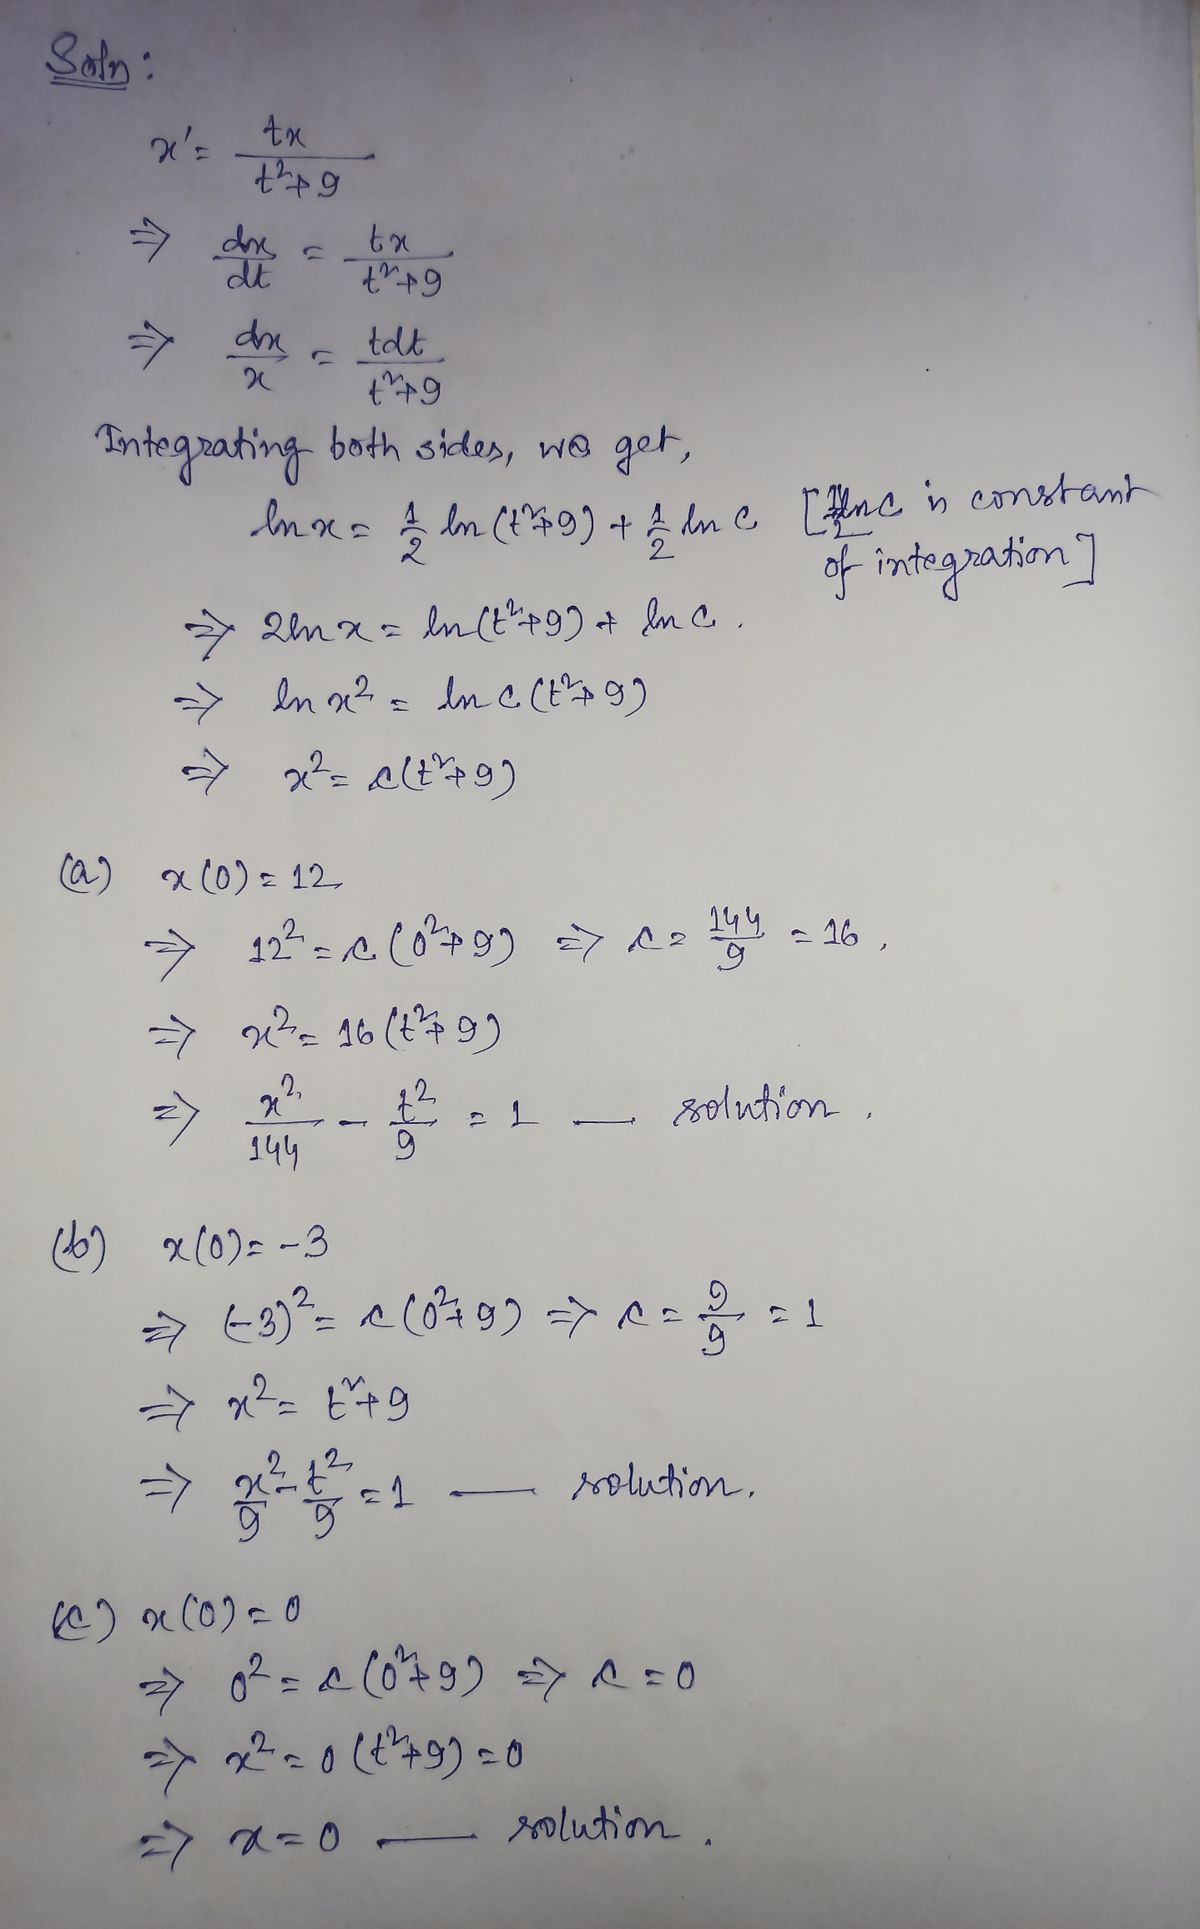 Soln:
x' = tx / (t²+9)
⇒ dx/dt = tx / (t²+9)
⇒ dx/x = tdt / (t²+9)
Integrating both sides, we get,
ln x = 1/2 ln (t²+9) + 1/2 ln c [1/2 ln c is constant of integration]
⇒ 2ln x = ln(t²+9) + ln c.
⇒ ln x² = ln c (t²+9)
⇒ x² = c(t²+9)
(a) x(0) = 12
⇒ 12² = c (0²+9) ⇒ c = 144/9 = 16,
⇒ x² = 16 (t²+9)
⇒ x²/144 - t²/9 = 1 — solution.
(b) x(0) = -3
⇒ (-3)² = c (0²+9) ⇒ c = 9/9 = 1
⇒ x² = t²+9
⇒ x²/9 - t²/9 = 1 — solution.
(c) x(0) = 0
⇒ 0² = c (0²+9) ⇒ c = 0
⇒ x² = 0 (t²+9) = 0
⇒ x = 0 — solution.